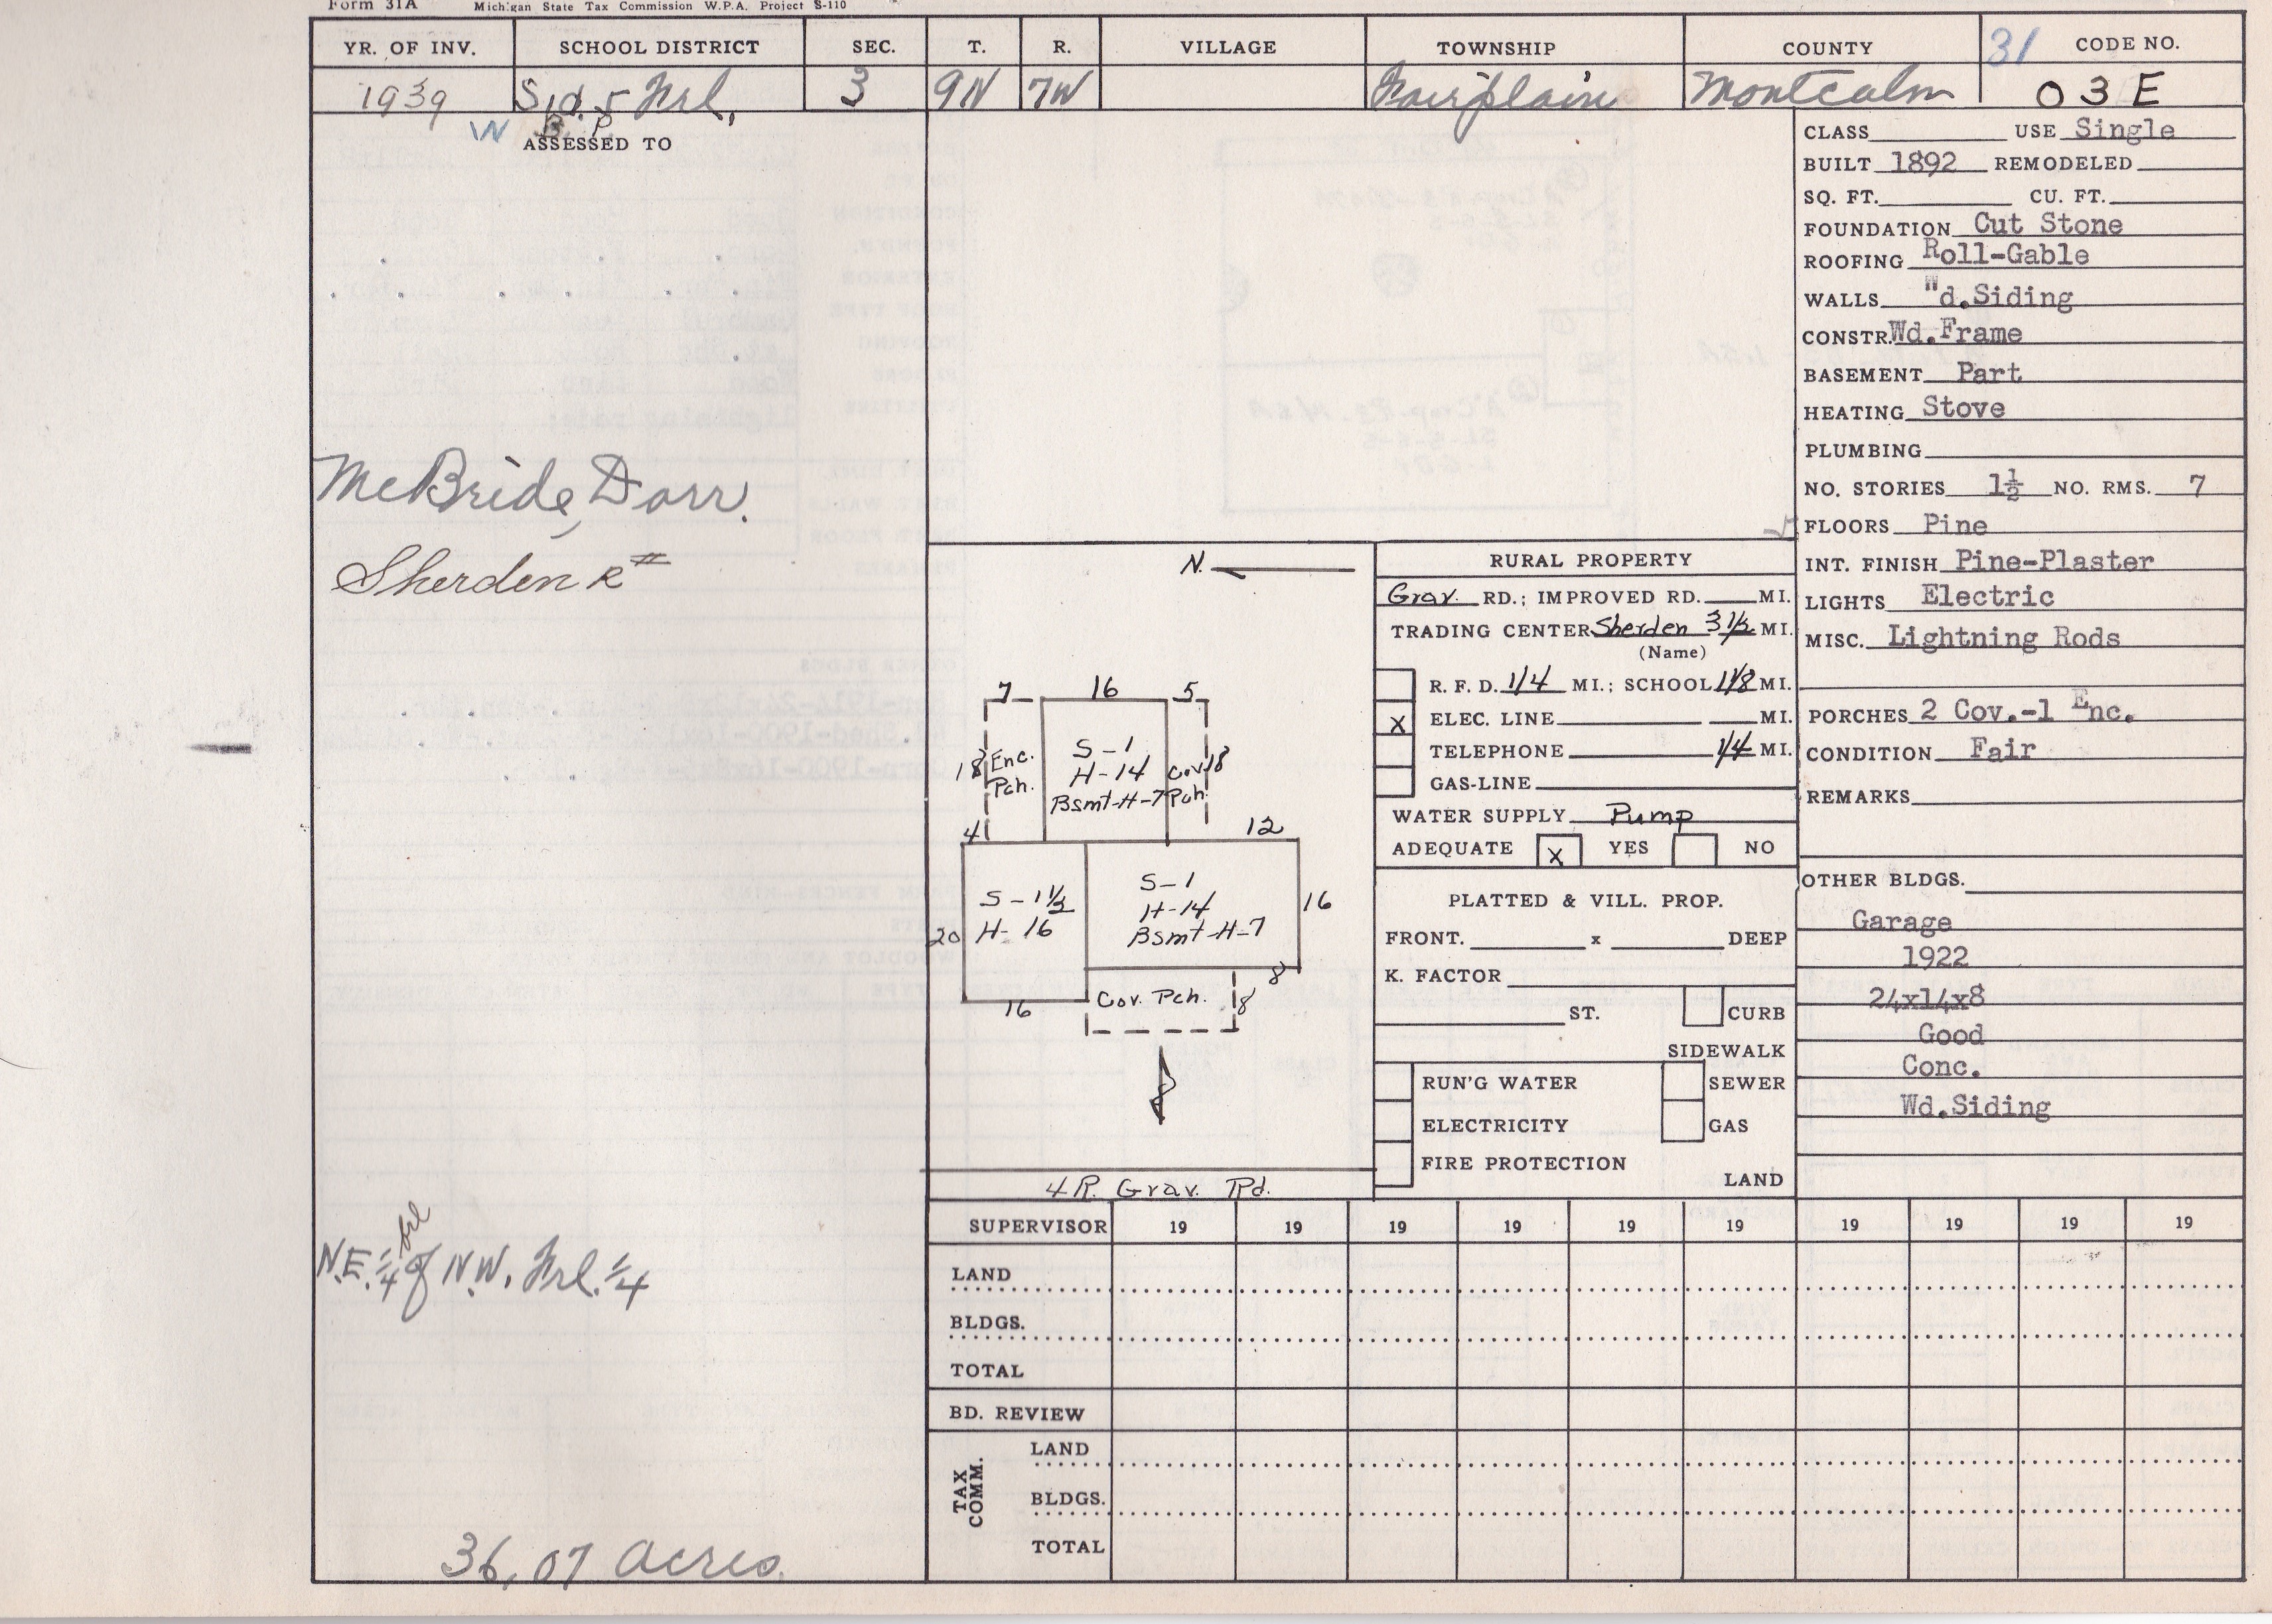 Form 31A Michigan State Tax Commission W.P.A. Project S-110
YR. OF INV. SCHOOL DISTRICT SEC. T. R. VILLAGE TOWNSHIP COUNTY 31 CODE NO.
1939 Sid. 5 Frl, 3 9N 7W Fairplain Montcalm 03E
W B. P.
ASSESSED TO
McBride, Dorr.
Sherden R#
frl
N.E. 1/4 of N.W. Frl. 1/4
36.07 acres.
N.
7 16 5
18 Enc. Pch.
S-1
H-14
Bsmt-H-7
Cov. Pch. 18
4 12
S-1 1/2
H-16
20
16
S-1
H-14
Bsmt-H-7
16
8
Cov. Pch. 8
4 R. Grav. Rd.
RURAL PROPERTY
Grav. RD.; IMPROVED RD. MI.
TRADING CENTER Sherden 3 1/2 MI.
(Name)
R. F. D. 1/4 MI.; SCHOOL 1 1/8 MI.
X ELEC. LINE MI.
TELEPHONE 1/4 MI.
GAS-LINE
WATER SUPPLY Pump
ADEQUATE X YES NO
PLATTED & VILL. PROP.
FRONT. x DEEP
K. FACTOR
ST. CURB
SIDEWALK
RUN'G WATER SEWER
ELECTRICITY GAS
FIRE PROTECTION
LAND
CLASS USE Single
BUILT 1892 REMODELED
SQ. FT. CU. FT.
FOUNDATION Cut Stone
ROOFING Roll-Gable
WALLS Wd.Siding
CONSTR. Wd.Frame
BASEMENT Part
HEATING Stove
PLUMBING
NO. STORIES 1½ NO. RMS. 7
FLOORS Pine
INT. FINISH Pine-Plaster
LIGHTS Electric
MISC. Lightning Rods
PORCHES 2 Cov.-1 Enc.
CONDITION Fair
REMARKS
OTHER BLDGS.
Garage
1922
24x14x8
Good
Conc.
Wd.Siding
SUPERVISOR 19 19 19 19 19 19 19 19 19 19
LAND
BLDGS.
TOTAL
BD. REVIEW
TAX COMM.
LAND
BLDGS.
TOTAL